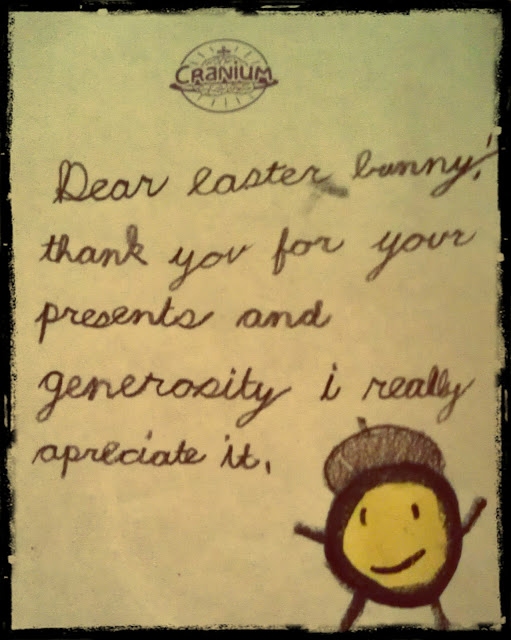 CRANIUM
Dear easter bunny!
thank you for your
presents and
generosity i really
apreciate it.